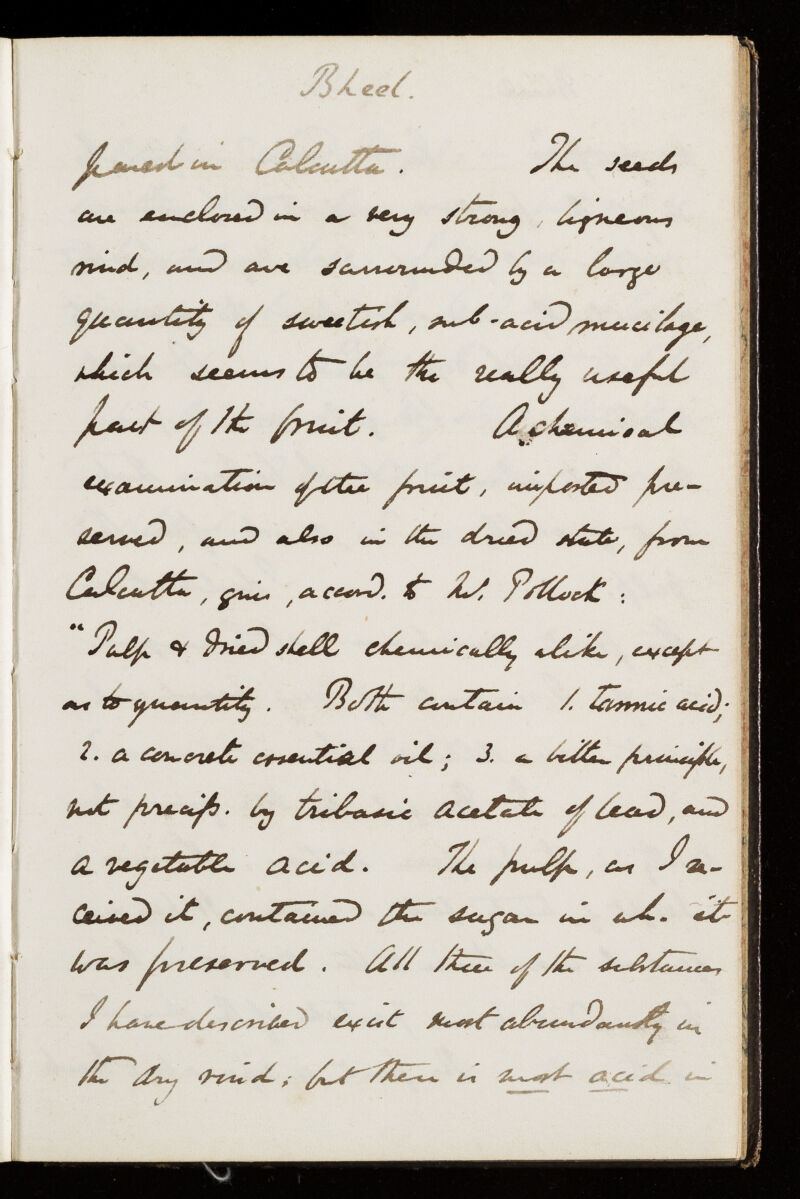 Bheel.
pared in Calcutta. The seeds
are enclosed in a very strong, ligneous
rind, and are surrounded by a large
quantity of sweetish, sub-acid mucilage,
which seems to be the really useful
part of the fruit. A chemical
examination of the fruit, imported pre-
served, and also in the dried state, from
Calcutta, gives, accord. to W. Pollock:
"Pulp & dried shell chemically alike, except
as to quantity. Both contain 1. tannic acid;
2. a concrete essential oil; 3. a bitter principle,
not precip. by tribasic acetate of lead, and
a vegetable acid. The pulp, as I re-
ceived it, contained the sugar in wh. it
was preserved. All three of the substances
I have described exist most abundantly in
the dry rind; but there is most acid in